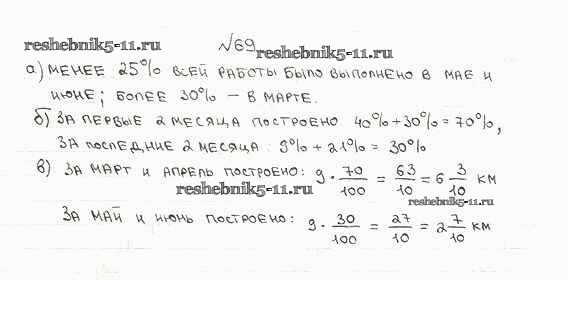 reshebnik5-11.ru №69
reshebnik5-11.ru
а) Менее 25% всей работы было выполнено в мае и
июне; более 30% – в марте.
б) За первые 2 месяца построено 40%+30%=70%,
За последние 2 месяца: 9%+21%= 30%
в) За март и апрель построено: 9·70/100 = 63/10 = 6 3/10 км
reshebnik5-11.ru
reshebnik5-11.ru
За май и июнь построено: 9·30/100 = 27/10 = 2 7/10 км